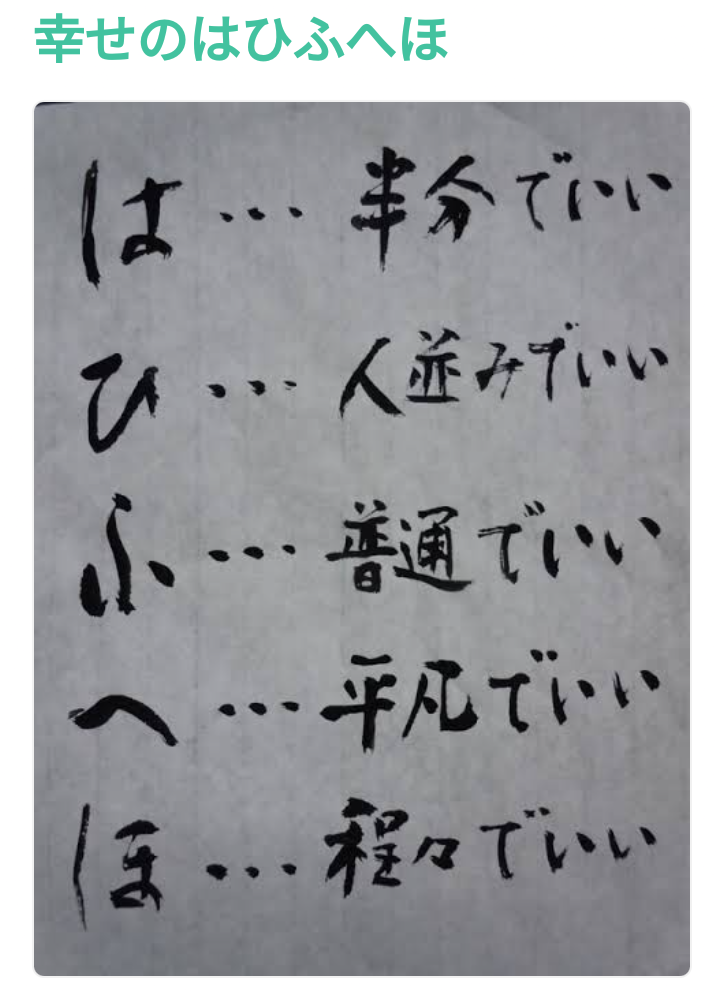 幸せのはひふへほ
は・・・半分でいい
ひ・・・人並みでいい
ふ・・・普通でいい
へ・・・平凡でいい
ほ・・・程々でいい